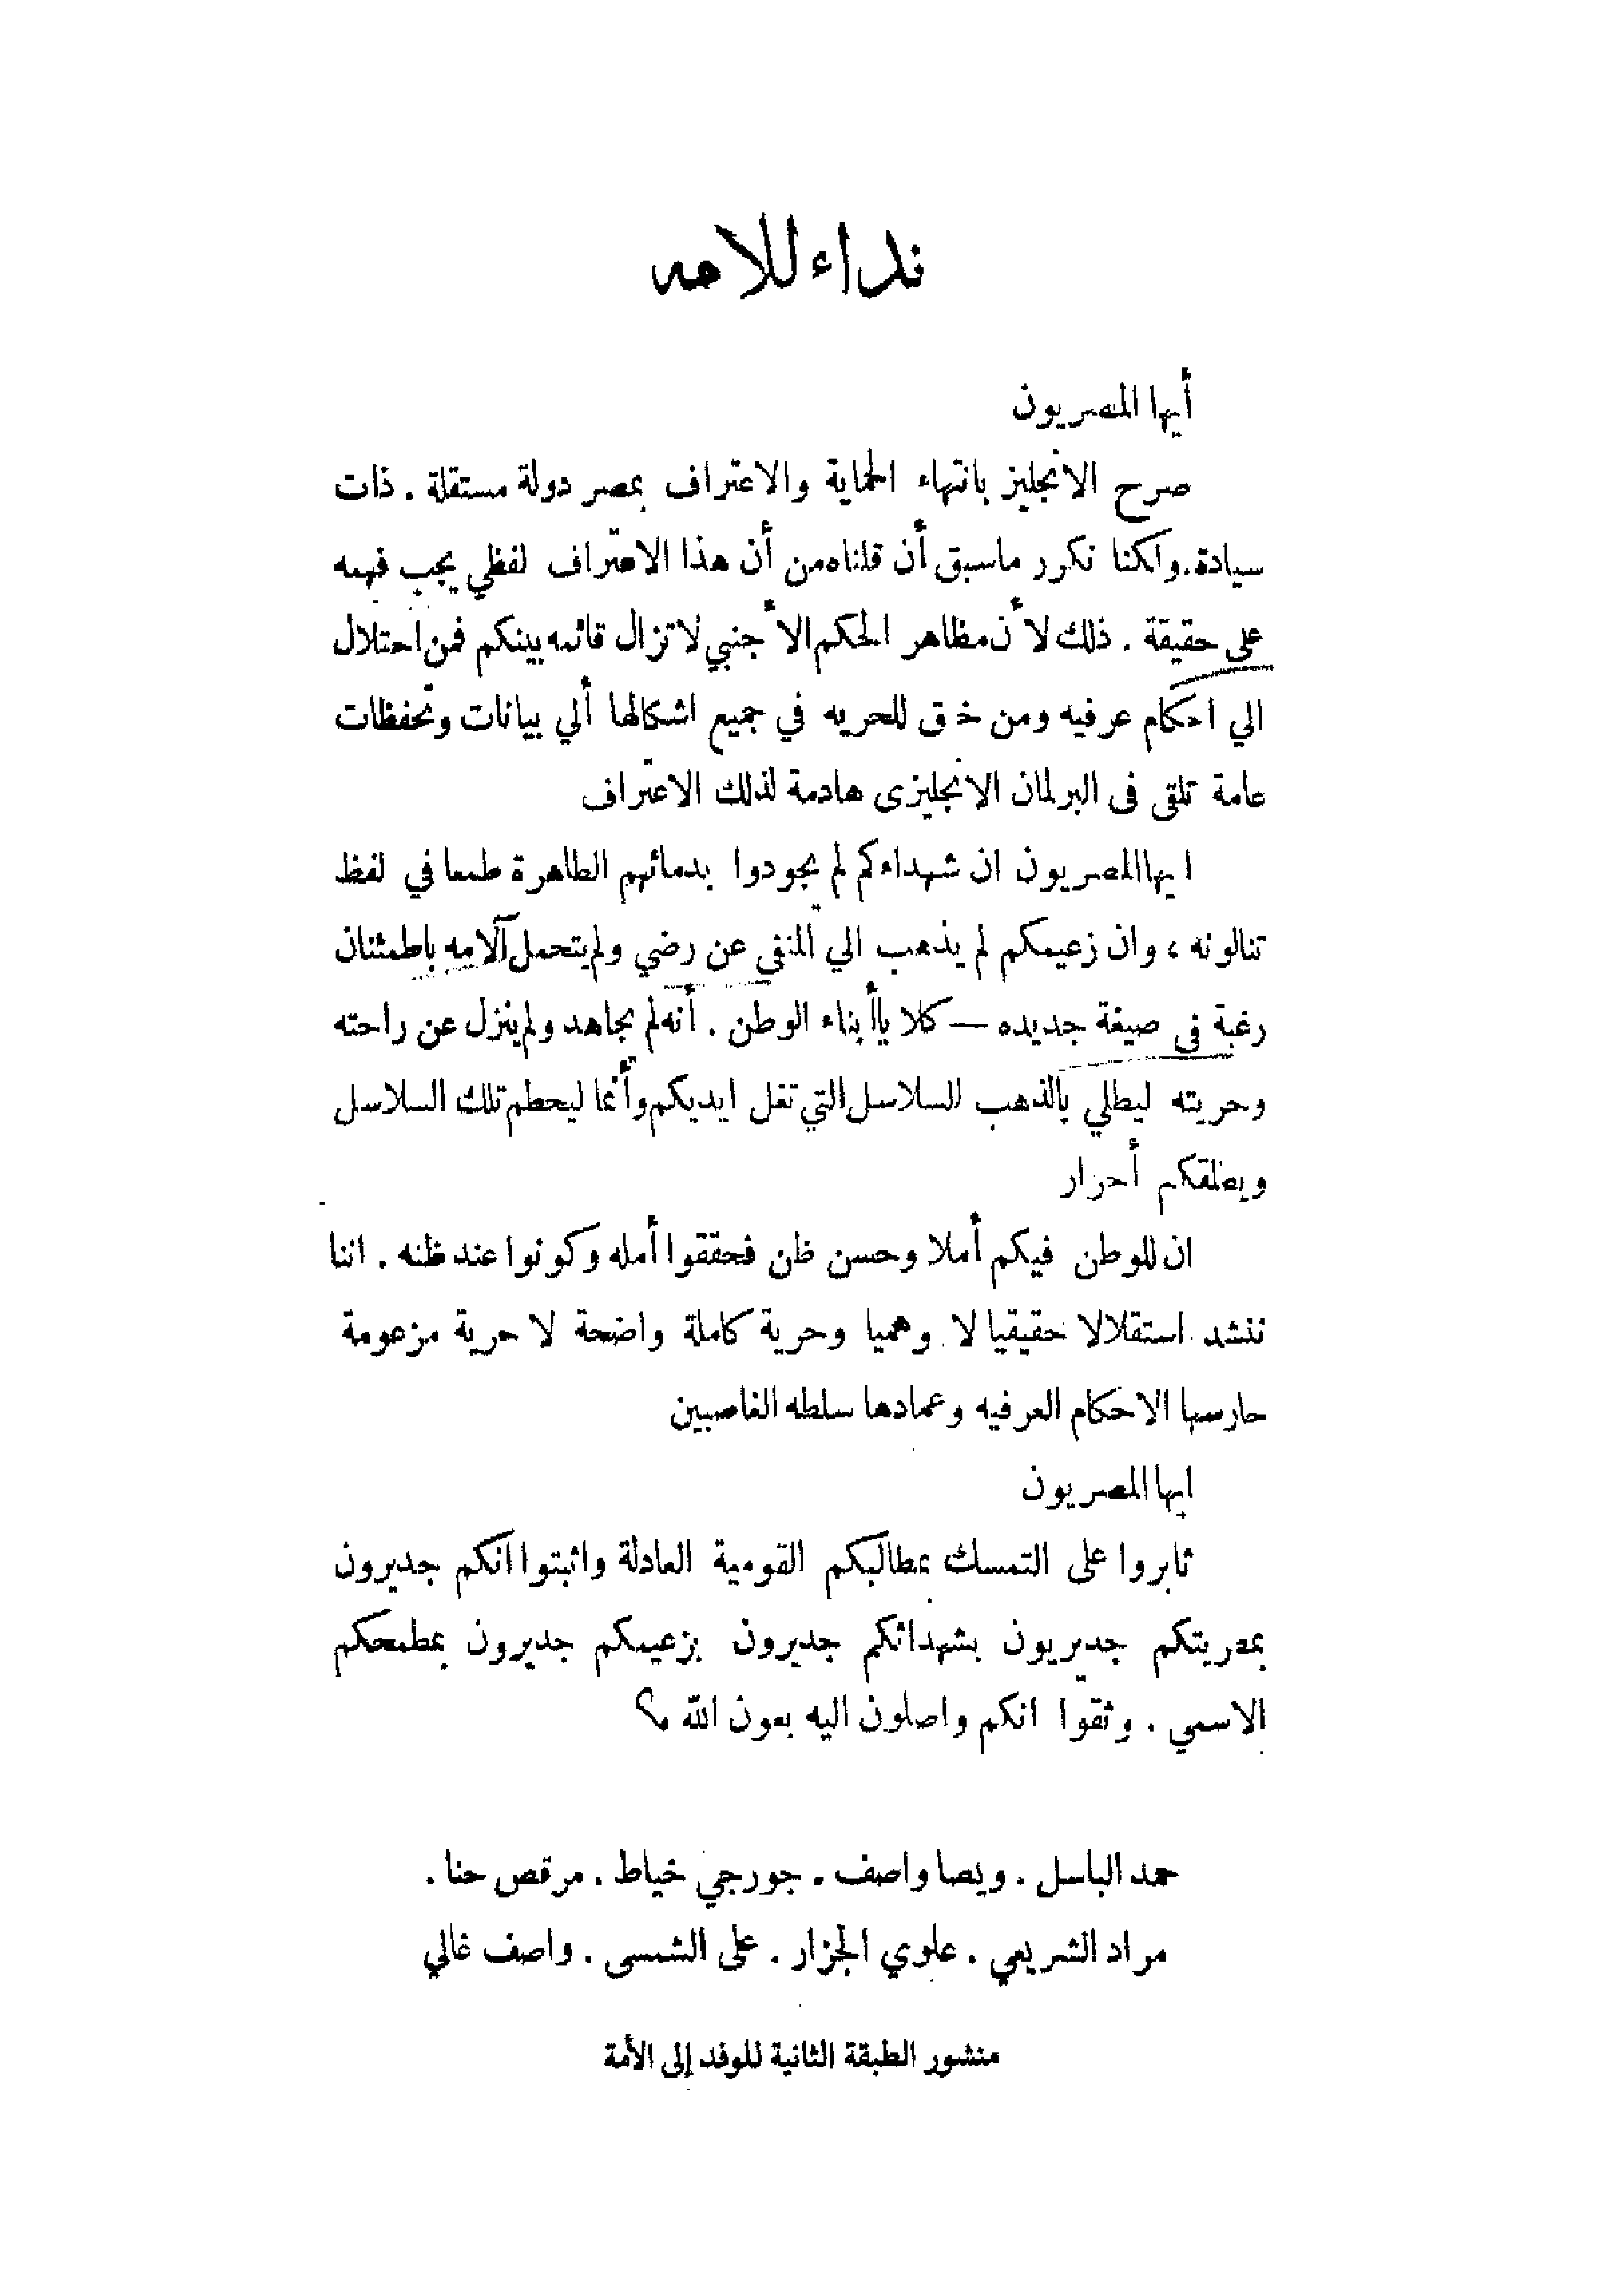 نداء للامه
أيها المصريون
صرح الانجليز بانتهاء الحماية والاعتراف بمصر دولة مستقلة . ذات
سيادة . ولكننا نكرر ماسبق أن قلناه من أن هذا الاعتراف لفظي يجب فهمه
على حقيقة . ذلك لأن مظاهر الحكم الأجنبي لا تزال قائمه بينكم فمن احتلال
الي احكام عرفيه ومن خرق للحريه في جميع اشكالها ألي بيانات وتحفظات
عامة تلقى فى البرلمان الانجليزى هادمة لذلك الاعتراف
ايها المصريون ان شهداءكم لم يجودوا بدمائهم الطاهرة طمعا في لفظ
تنالونه ، وان زعيمكم لم يذهب الي المنفى عن رضي ولم يتحمل آلامه باطمئنان
رغبة فى صيغة جديده — كلا ياأبناء الوطن . أنه لم يجاهد ولم ينزل عن راحته
وحريته ليطلي بالذهب السلاسل التي تغل ايديكم وأنما ليحطم تلك السلاسل
ويطلقكم أحرار
ان للوطن فيكم أملا وحسن ظن فحققوا أمله وكونوا عند ظنه . اننا
ننشد استقلالا حقيقيا لا وهميا وحرية كاملة واضحة لا حرية مزعومة
حارسها الاحكام العرفيه وعمادها سلطه الغاصبين
ايها المصريون
ثابروا على التمسك بمطالبكم القومية العادلة واثبتوا انكم جديرون
بمصريتكم جديريون بشهدائكم جديرون بزعيمكم جديرون بمطمحكم
الاسمي . وثقوا انكم واصلون اليه بعون الله م؟
حمد الباسل . ويصا واصف . جورجي خياط . مرقص حنا .
مراد الشريعي . علوي الجزار . على الشمسى . واصف غالي
منشور الطبقة الثانية للوفد إلى الأمة